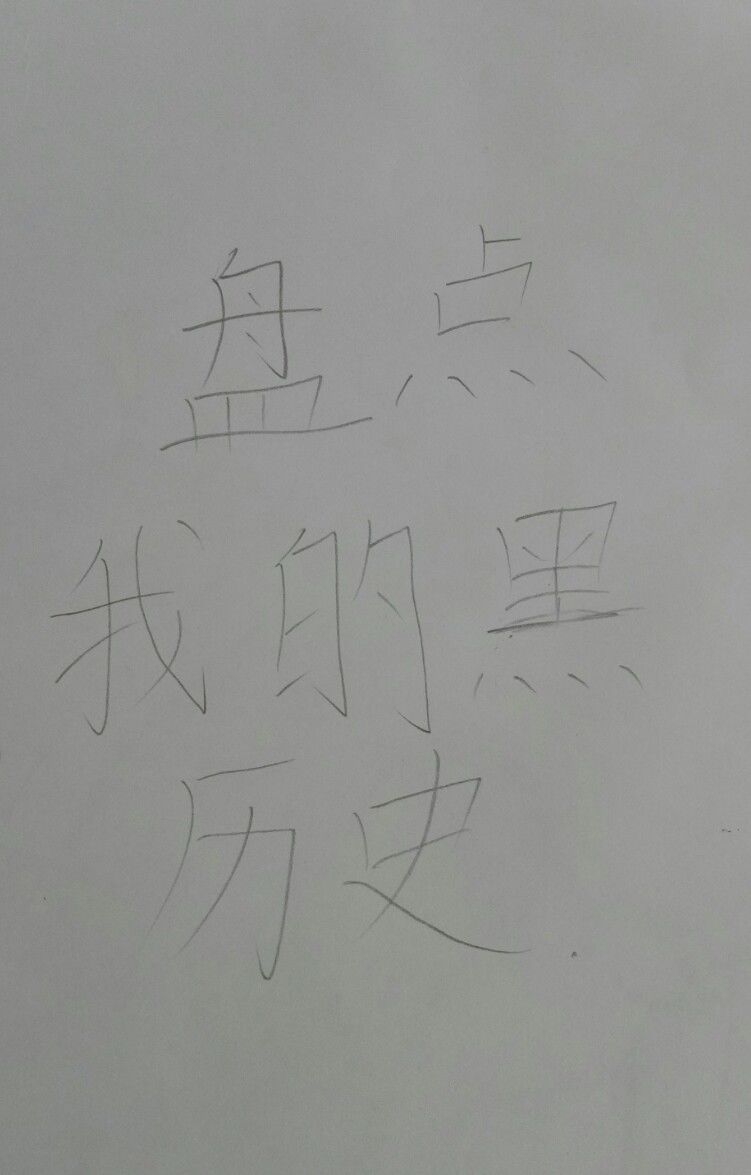 盘点
我的黑
历史